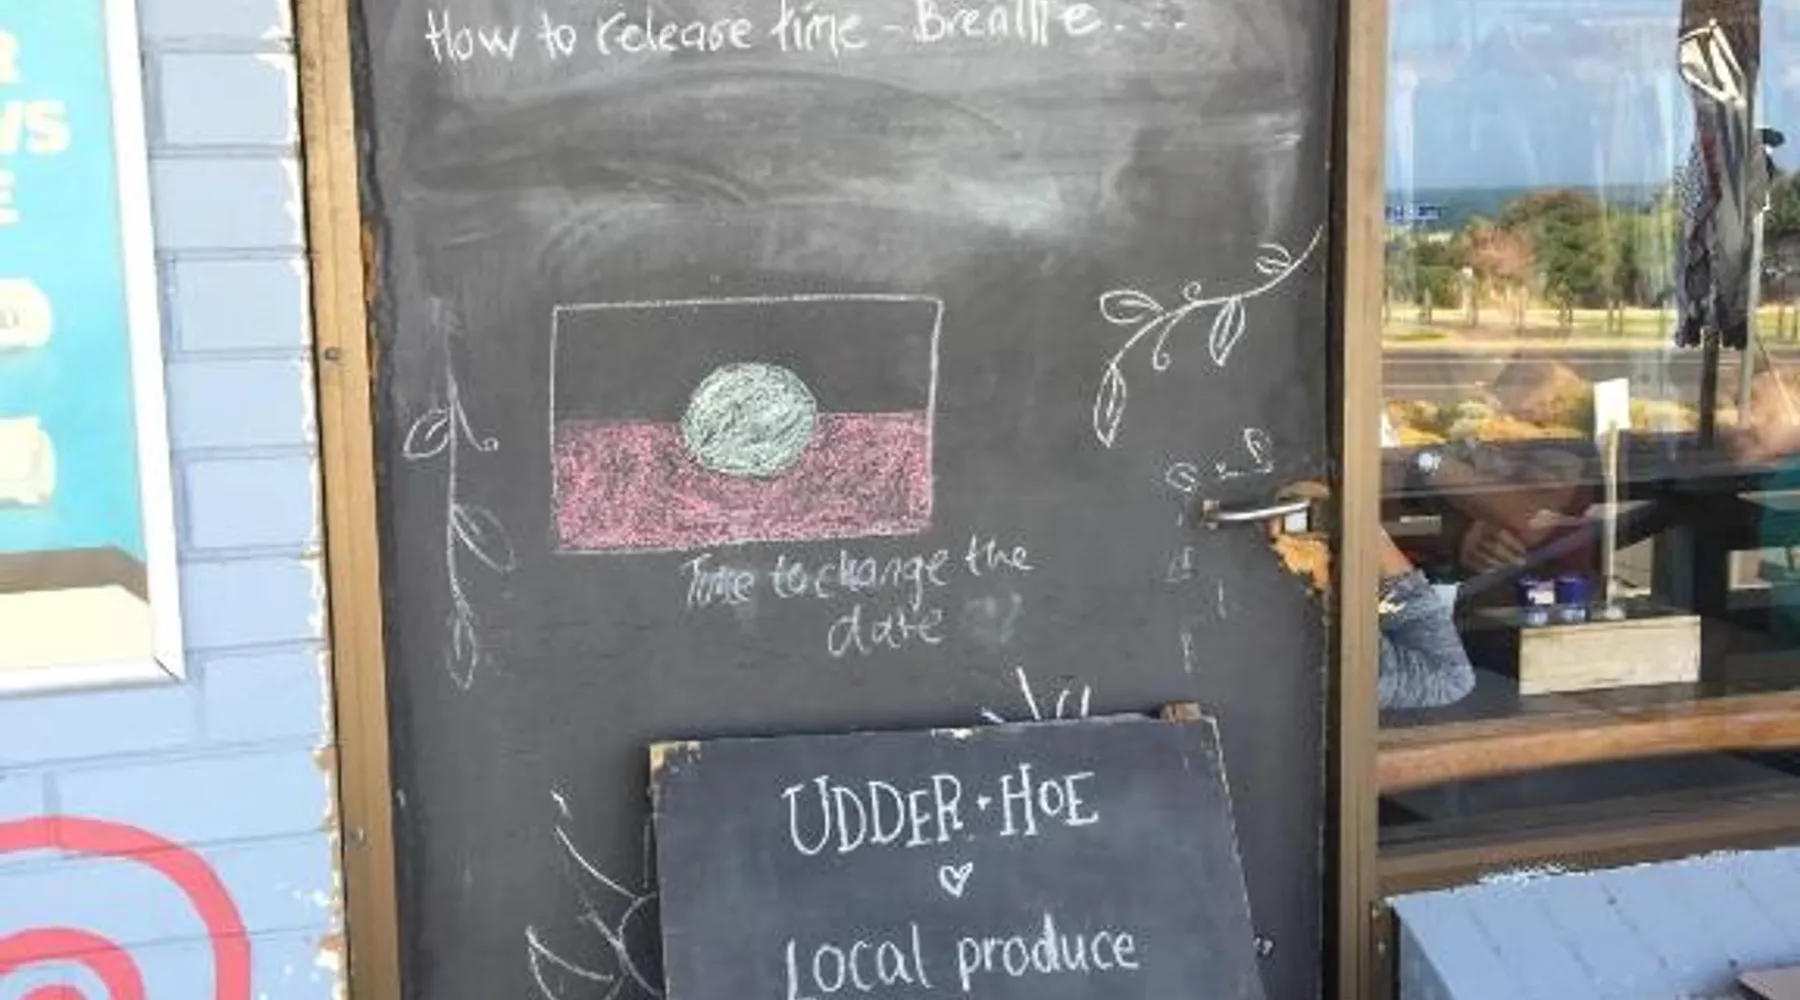 How to release time - Breathe...
Time to change the
date
UDDER · HOE
Local produce